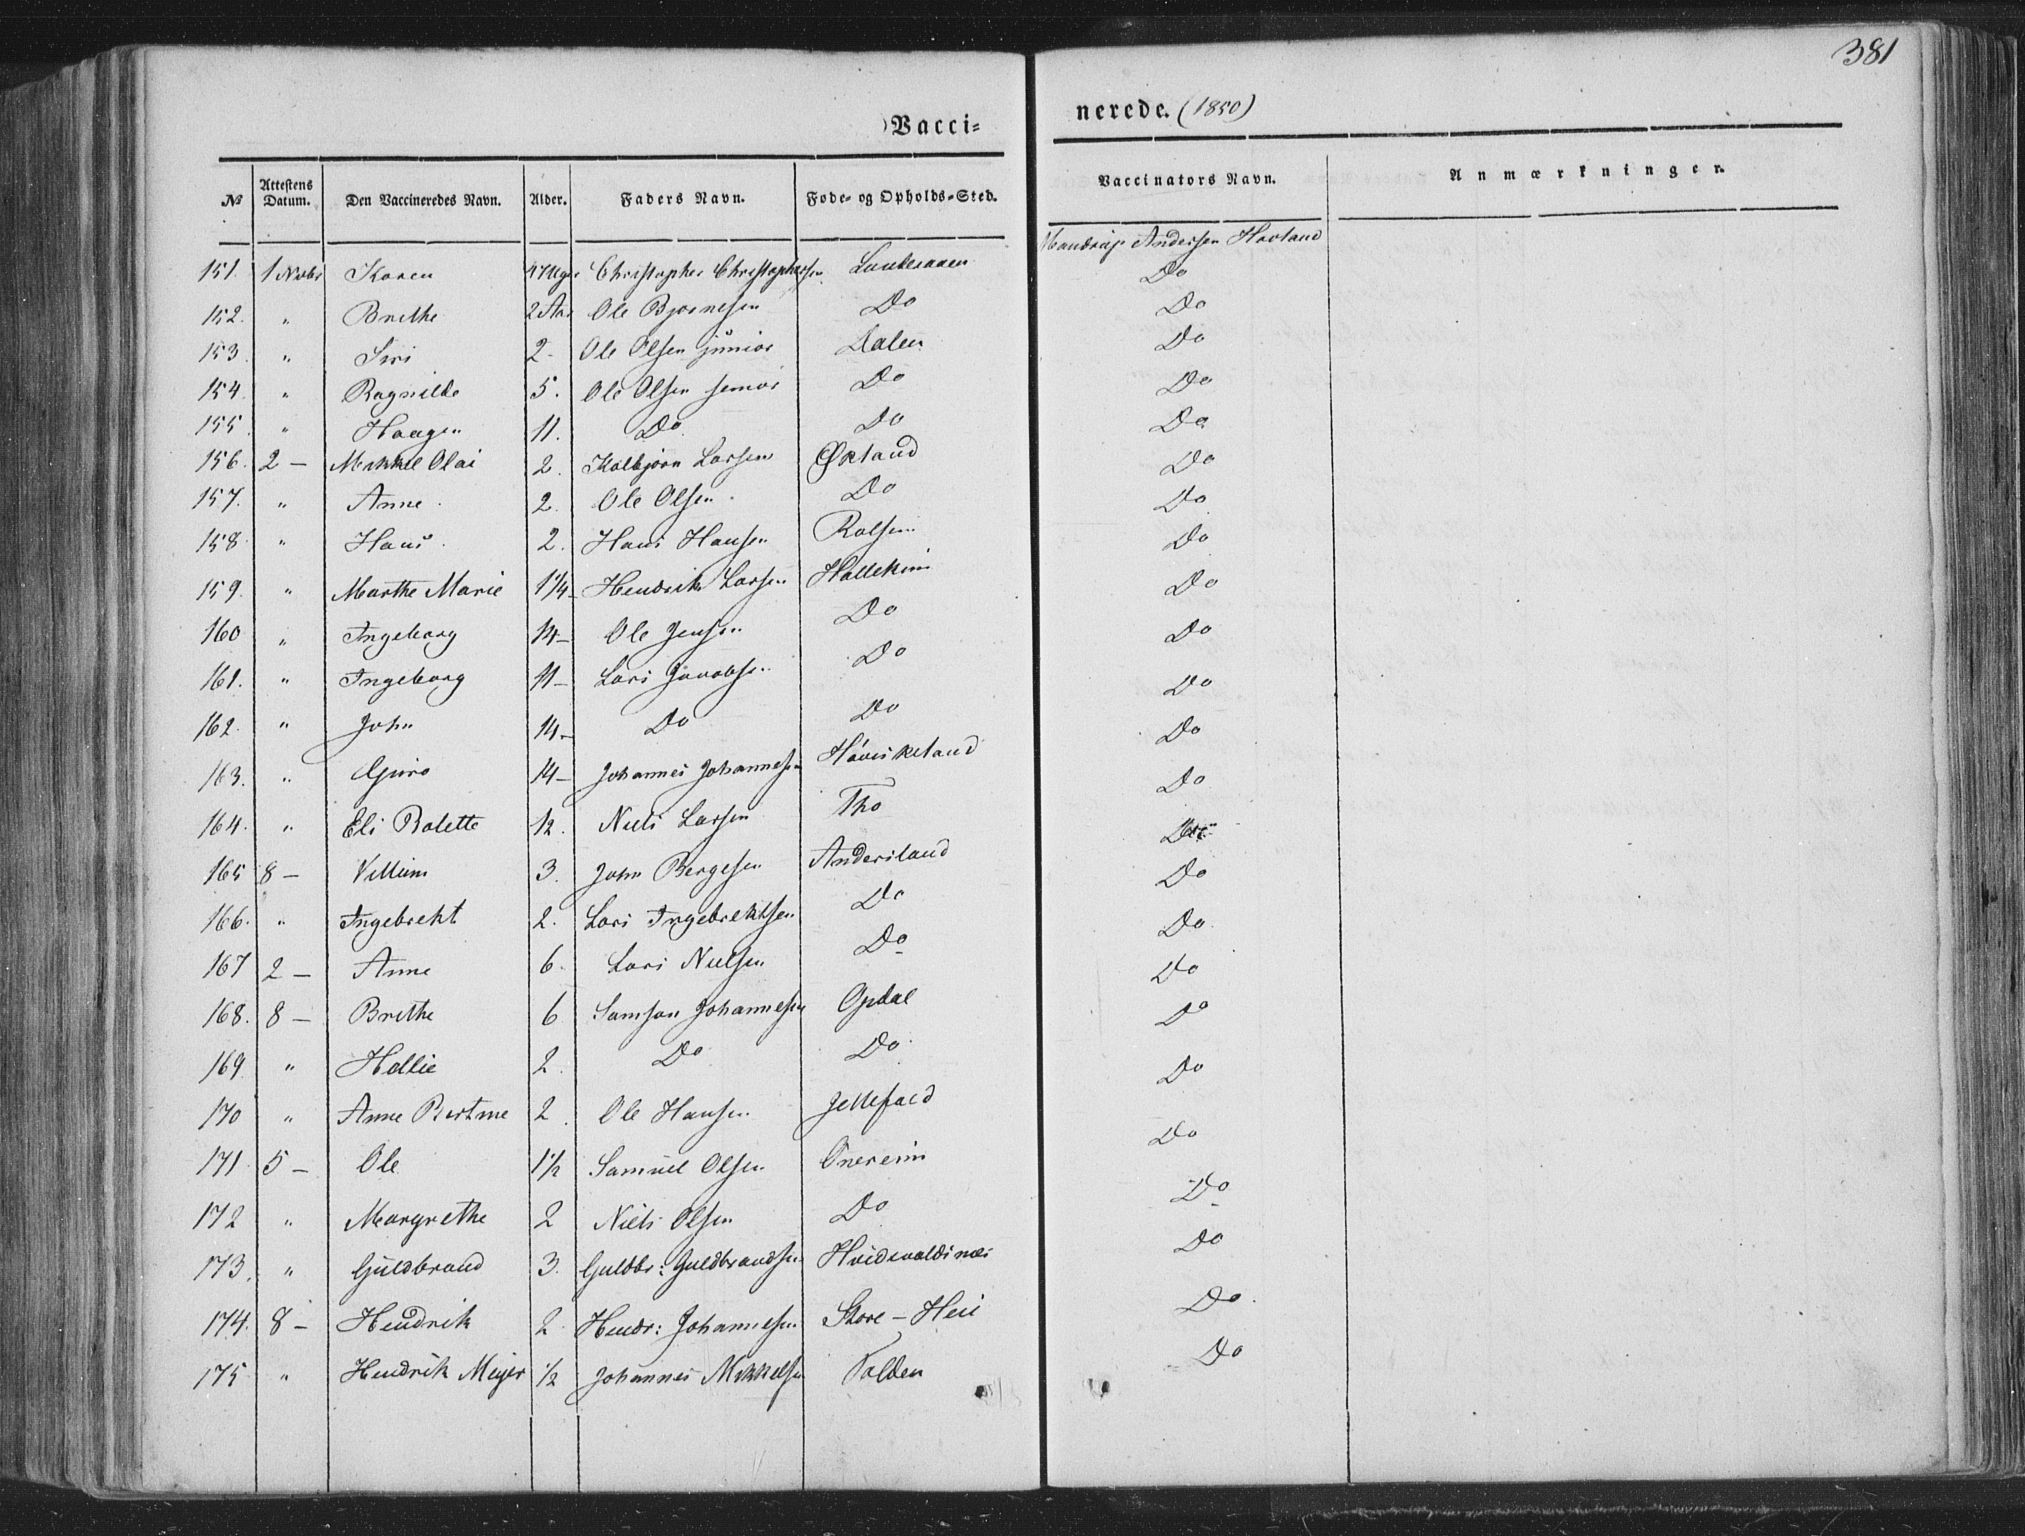 381
Vacci=
nerede. (1850)
No Attestens Datum. Den Vaccineredes Navn. Alder. Faders Navn. Føde- og Opholds-Sted. Vaccinators Navn. Anmærkninger.
Andersen Hovland
151. 1 Novbr Karen 17 Uger Christopher Christophersen Do
152. " Brithe 2 Aar Ole Bjørnesen Do Do
153 " Siri 2- Ole Olsen junior Dalen Do
154 " Ragnilde 5. Ole Olsen senior Do Do
155 " Haagen 11. Do Do Do
156. 2 - Mikkel Olai 2. Kolbjørn Larsen Øxland Do
157. " Anne. 2. Ole Olsen. Do Do
158 " Hans. 2. Hans Hansen Do
159. " Marthe Marie 1 1/4 - Hendrik Larsen Hallekim Do
160 " Ingeborg 14- Ole Jensen Do Do
161. " Ingeborg 11- Lars Jacobsen Do Do
162. " John 14- Do Do Do
163. " Guro 14- Johannes Johannesen Do
164. " Eli Bolette 12. Niels Larsen Tho
165 8 - Villum 3. John Bergesen Andersland Do
166. " Ingebreht 2. Lars Ingebrektsen Do Do
167 2 - Anne 6. Lars Nielsen Do Do
168. 8 - Brithe 6 Samson Johannesen Opdal Do
169 " Hellie 2. Do Do Do
170 " Anne Bertine 2. Ole Hansen Do
171 5 - Ole 1 1/2 Samuel Olsen Onereim Do
172 " Margrethe 2 Niels Olsen Do Do
173. " Guldbrand 3. Guldbr: Guldbrandsen Do
174. 8 - Hendrik 2. Hendr: Johannesen Store - Heie Do
175 " Hendrik Meyer 1/2 Johannes Mikkelsen Valden Do